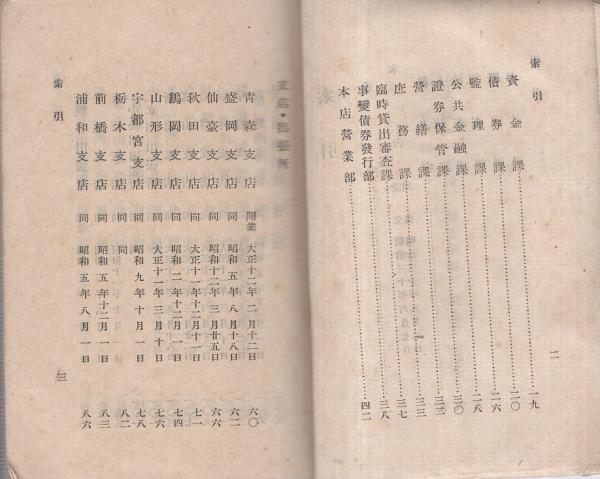 索引
資金課 一九
債券課 二〇
監理課 二六
公共金融課 二八
證券保管課 三〇
營繕課 三二
庶務課 三三
臨時貸出審査課 三七
事變債券發行部 三八
本店營業部 四二
二
支店・出張所
青森支店 開業 大正十二年二月十二日 六〇
盛岡支店 同 昭和五年八月十八日 六二
仙臺支店 同 昭和十二年三月廿五日 六六
秋田支店 同 大正十一年十二月十一日 七一
鶴岡支店 同 昭和二年十二月一日 七四
山形支店 同 大正十一年三月十日 七六
宇都宮支店 同 昭和九年十月一日 七八
栃木支店 同 同 八二
前橋支店 同 昭和五年十二月一日 八三
浦和支店 同 昭和五年八月一日 八六
索引
三